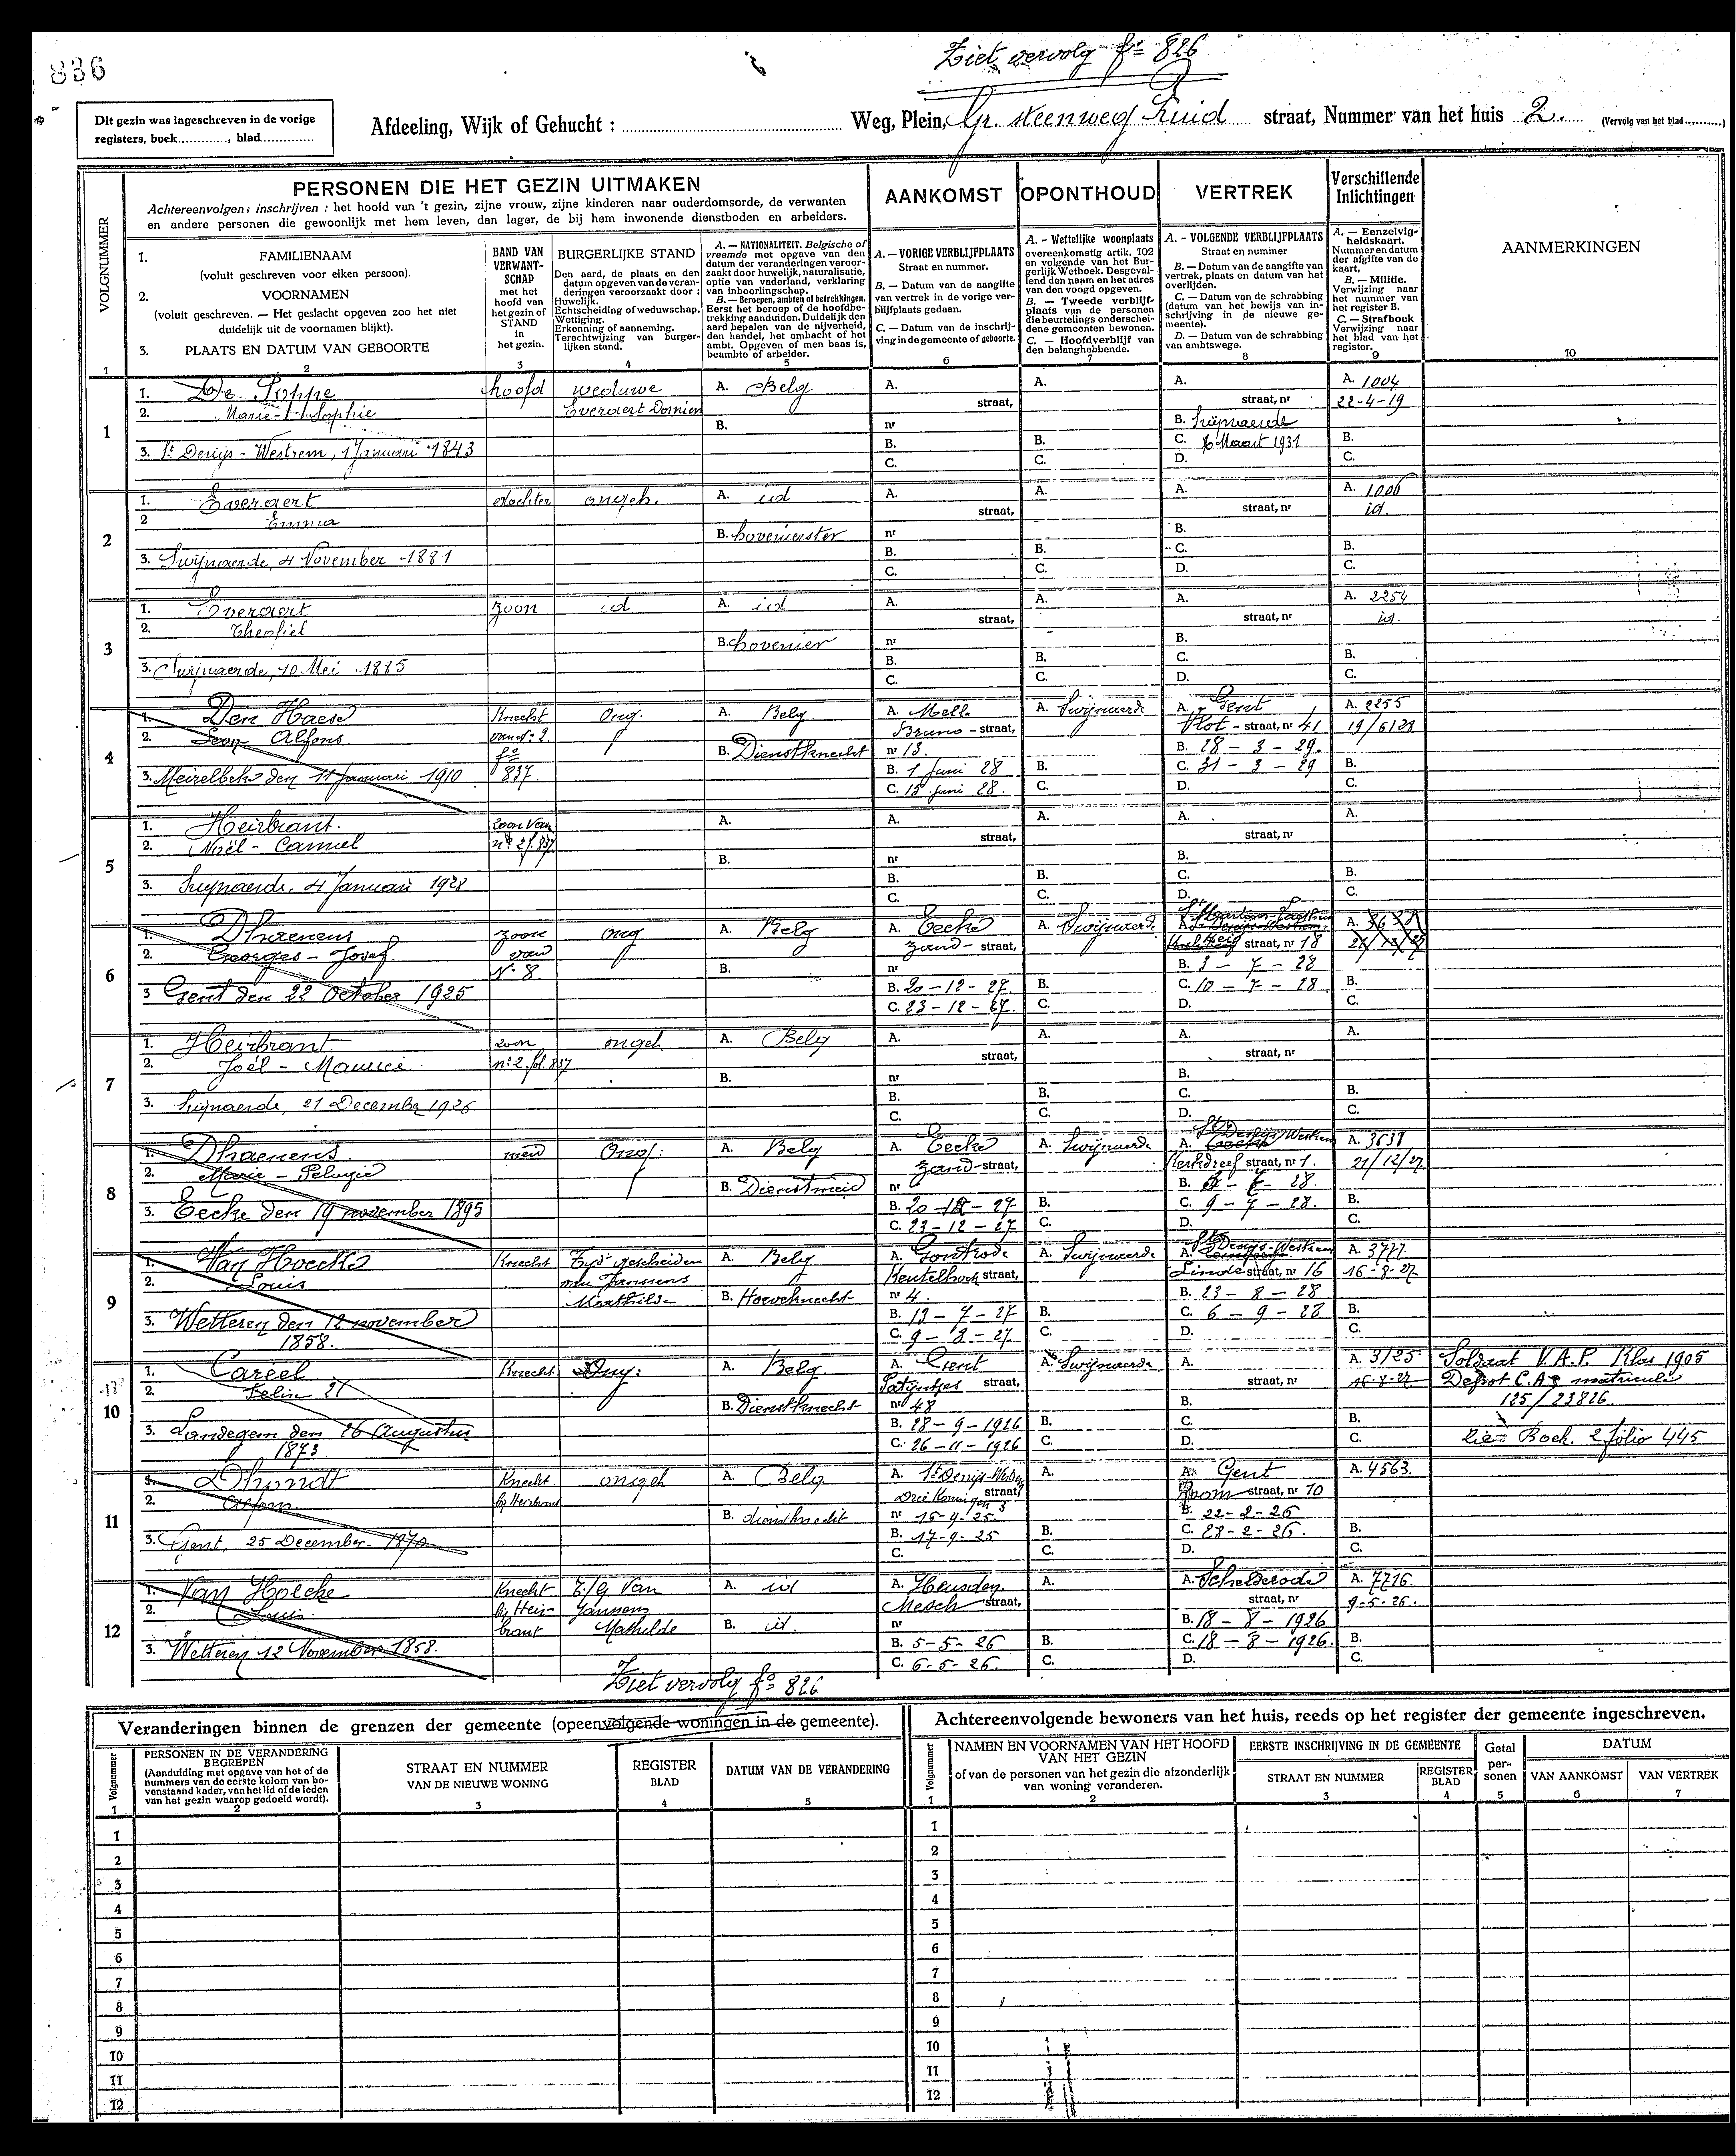 836
Ziet vervolg fº 826
Dit gezin was ingeschreven in de vorige
registers, boek............, blad..............
Afdeeling, Wijk of Gehucht : ............ Weg, Plein, Gr. steenweg Zuid straat, Nummer van het huis 2. (Vervolg van het blad ..........)
VOLGNUMMER
PERSONEN DIE HET GEZIN UITMAKEN
Achtereenvolgens inschrijven : het hoofd van 't gezin, zijne vrouw, zijne kinderen naar ouderdomsorde, de verwanten
en andere personen die gewoonlijk met hem leven, dan lager, de bij hem inwonende dienstboden en arbeiders.
AANKOMST
OPONTHOUD
VERTREK
Verschillende
Inlichtingen
AANMERKINGEN
1. FAMILIENAAM
(voluit geschreven voor elken persoon).
2. VOORNAMEN
(voluit geschreven. — Het geslacht opgeven zoo het niet
duidelijk uit de voornamen blijkt).
3. PLAATS EN DATUM VAN GEBOORTE
BAND VAN
VERWANT-
SCHAP
met het
hoofd van
het gezin of
STAND
in
het gezin.
BURGERLIJKE STAND
Den aard, de plaats en den
datum opgeven van de veran-
deringen veroorzaakt door :
Huwelijk.
Echtscheiding of weduwschap.
Wettiging.
Erkenning of aanneming.
Terechtwijzing van burger-
lijken stand.
A. — NATIONALITEIT. Belgische of
vreemde met opgave van den
datum der veranderingen veroor-
zaakt door huwelijk, naturalisatie,
optie van vaderland, verklaring
van inboorlingschap.
B. — Beroepen, ambten of betrekkingen.
Eerst het beroep of de hoofdbe-
trekking aanduiden. Duidelijk den
aard bepalen van de nijverheid,
den handel, het ambacht of het
ambt. Opgeven of men baas is,
beambte of arbeider.
A. — VORIGE VERBLIJFPLAATS
Straat en nummer.
B. — Datum van de aangifte
van vertrek in de vorige ver-
blijfplaats gedaan.
C. — Datum van de inschrij-
ving in de gemeente of geboorte.
A. - Wettelijke woonplaats
overeenkomstig artik. 102
en volgende van het Bur-
gerlijk Wetboek. Desgeval-
lend den naam en het adres
van den voogd opgeven.
B. — Tweede verblijf-
plaats van de personen
die beurtelings onderschei-
dene gemeenten bewonen.
C. — Hoofdverblijf van
den belanghebbende.
A. - VOLGENDE VERBLIJFPLAATS
Straat en nummer
B. — Datum van de aangifte van
vertrek, plaats en datum van het
overlijden.
C. — Datum van de schrabbing
(datum van het bewijs van in-
schrijving in de nieuwe ge-
meente).
D. — Datum van de schrabbing
van ambtswege.
A. — Eenzelvig-
heidskaart.
Nummer en datum
der afgifte van de
kaart.
B. — Militie.
Verwijzing naar
het nummer van
het register B.
C. — Strafboek
Verwijzing naar
het blad van het
register.
1 2 3 4 5 6 7 8 9 10
1
1. De Poppe hoofd weduwe A. Belg A. A. A. A. 1004
2. Marie - Sophie Everaert Domien straat, straat, nr 22-4-19
B. nr B. Swijnaerde
3. St Denijs - Westrem, 1 Januari 1843 B. B. C. 6 Maart 1931 B.
C. C. D. C.
2
1. Everaert dochter ongeh. A. id A. A. A. A. 1006
2 Emma straat, straat, nr id.
B. hovenierster nr B.
3. Swijnaerde, 4 November 1881 B. B. C. B.
C. C. D. C.
3
1. Everaert zoon id A. id A. A. A. A. 2254
2. Theofiel straat, straat, nr id.
B. hovenier nr B.
3. Swijnaerde, 10 Mei 1885 B. B. C. B.
C. C. D. C.
4
1. Den Haese Knecht Ong. A. Belg A. Melle A. Swijnaerde A. Gent A. 2255
2. Leon Alfons. van nº 2. Bruno - straat, Vlot - straat, nr 41 19/6/28
fº B. Dienstknecht nr 13. B. 28 - 3 - 29.
3. Meirelbeke den 11 Januari 1910 837. B. 1 Juni 28 B. C. 31 - 3 - 29 B.
C. 15 Juni 28. C. D. C.
5
1. Heirbrant. zoon van A. A. A. A. A.
2. Noël - Camiel nº 2 f. 837 straat, straat, nr
B. nr B.
3. Swijnaerde, 4 Januari 1928 B. B. C. B.
C. C. D. C.
6
1. Dhaenens zoon ong A. Belg A. Eecke A. Swijnaerde A. A. 3638
2. Georges - Jozef. van Zand - straat, straat, nr 18 21/12/27
Nº 8. B. nr B. 3 - 7 - 28
3 Gent den 22 October 1925 B. 20 - 12 - 27 B. C. 10 - 7 - 28 B.
C. 23 - 12 - 27. C. D. C.
7
1. Heirbrant zoon ongeh A. Belg A. A. A. A.
2. Joël - Maurice nº 2 fol. 837 straat, straat, nr
B. nr B.
3. Swijnaerde, 21 December 1926 B. B. C. B.
C. C. D. C.
8
1. Dhaenens meid Ong: A. Belg A. Eecke A. Swijnaerde A. St Denijs Westrem A. 3638
2. Marie - Pelagie Zand - straat, Kerkdreef straat, nr 1. 21/12/27
B. Dienstmeid nr B. 28.
3. Eecke den 19 november 1895 B. 20 - 12 - 27 B. C. 9 - 7 - 28. B.
C. 23 - 12 - 27 C. D. C.
9
1. Van Hoecke Knecht Tijd. gescheiden A. Belg A. Gontrode A. Swijnaerde A. St Denijs - Westrem A. 3777.
2. Louis van Janssens Keutelhoek straat, Linde straat, nr 16 16-8-27
Mathilde B. Hoeveknecht nr 4. B. 23 - 8 - 28
3. Wetteren den 12 november B. 13 - 7 - 27 B. C. 6 - 9 - 28 B.
1858. C. 9 - 8 - 27 C. D. C.
10
1. Careel Knecht Ong: A. Belg A. Gent A. Swijnaerde A. A. 3125 Soldaat V.A.P. Klas 1905
2. Felix Patijntjes straat, straat, nr 16-8-27 Depot C.A. matricule
B. Dienstknecht nr 48 B. 125/23826.
3. Landegem den 26 Augustus B. 28 - 9 - 1926 B. C. B.
1873. C. 26 - 11 - 1926 C. D. C. Zie Boek. 2 folio 445
11
1. Dhondt Knecht ongeh A. Belg A. St Denijs-Westrem A. A. Gent A. 4563.
2. Alfons. bij Heirbrant Drie Koningen 3 straat, Boom straat, nr 10
B. dienstknecht nr 16-9-25. B. 22-2-26
3. Gent, 25 December - 1870 B. 17-9-25 B. C. 28-2-26. B.
C. C. D. C.
12
1. Van Hoecke Knecht T/g Van A. id A. Heusden. A. A. Schelderode A. 7716.
2. Louis. bij Heir- Janssens Mesch straat, straat, nr 9-5-26.
brant Mathilde B. id. nr B. 18 - 8 - 1926
3. Wetteren 12 November 1858. B. 5-5-26 B. C. 18 - 8 - 1926. B.
C. 6-5-26. C. D. C.
Ziet vervolg fº 826
Veranderingen binnen de grenzen der gemeente (opeenvolgende woningen in de gemeente).
Volgnummer
PERSONEN IN DE VERANDERING
BEGREPEN
(Aanduiding met opgave van het of de
nummers van de eerste kolom van bo-
venstaand kader, van het lid of de leden
van het gezin waarop gedoeld wordt).
STRAAT EN NUMMER
VAN DE NIEUWE WONING
REGISTER
BLAD
DATUM VAN DE VERANDERING
1 2 3 4 5
1
2
3
4
5
6
7
8
9
10
11
12
Achtereenvolgende bewoners van het huis, reeds op het register der gemeente ingeschreven.
Volgnummer
NAMEN EN VOORNAMEN VAN HET HOOFD
VAN HET GEZIN
of van de personen van het gezin die afzonderlijk
van woning veranderen.
EERSTE INSCHRIJVING IN DE GEMEENTE
STRAAT EN NUMMER
REGISTER
BLAD
Getal
per-
sonen
DATUM
VAN AANKOMST
VAN VERTREK
1 2 3 4 5 6 7
1
2
3
4
5
6
7
8
9
10
11
12